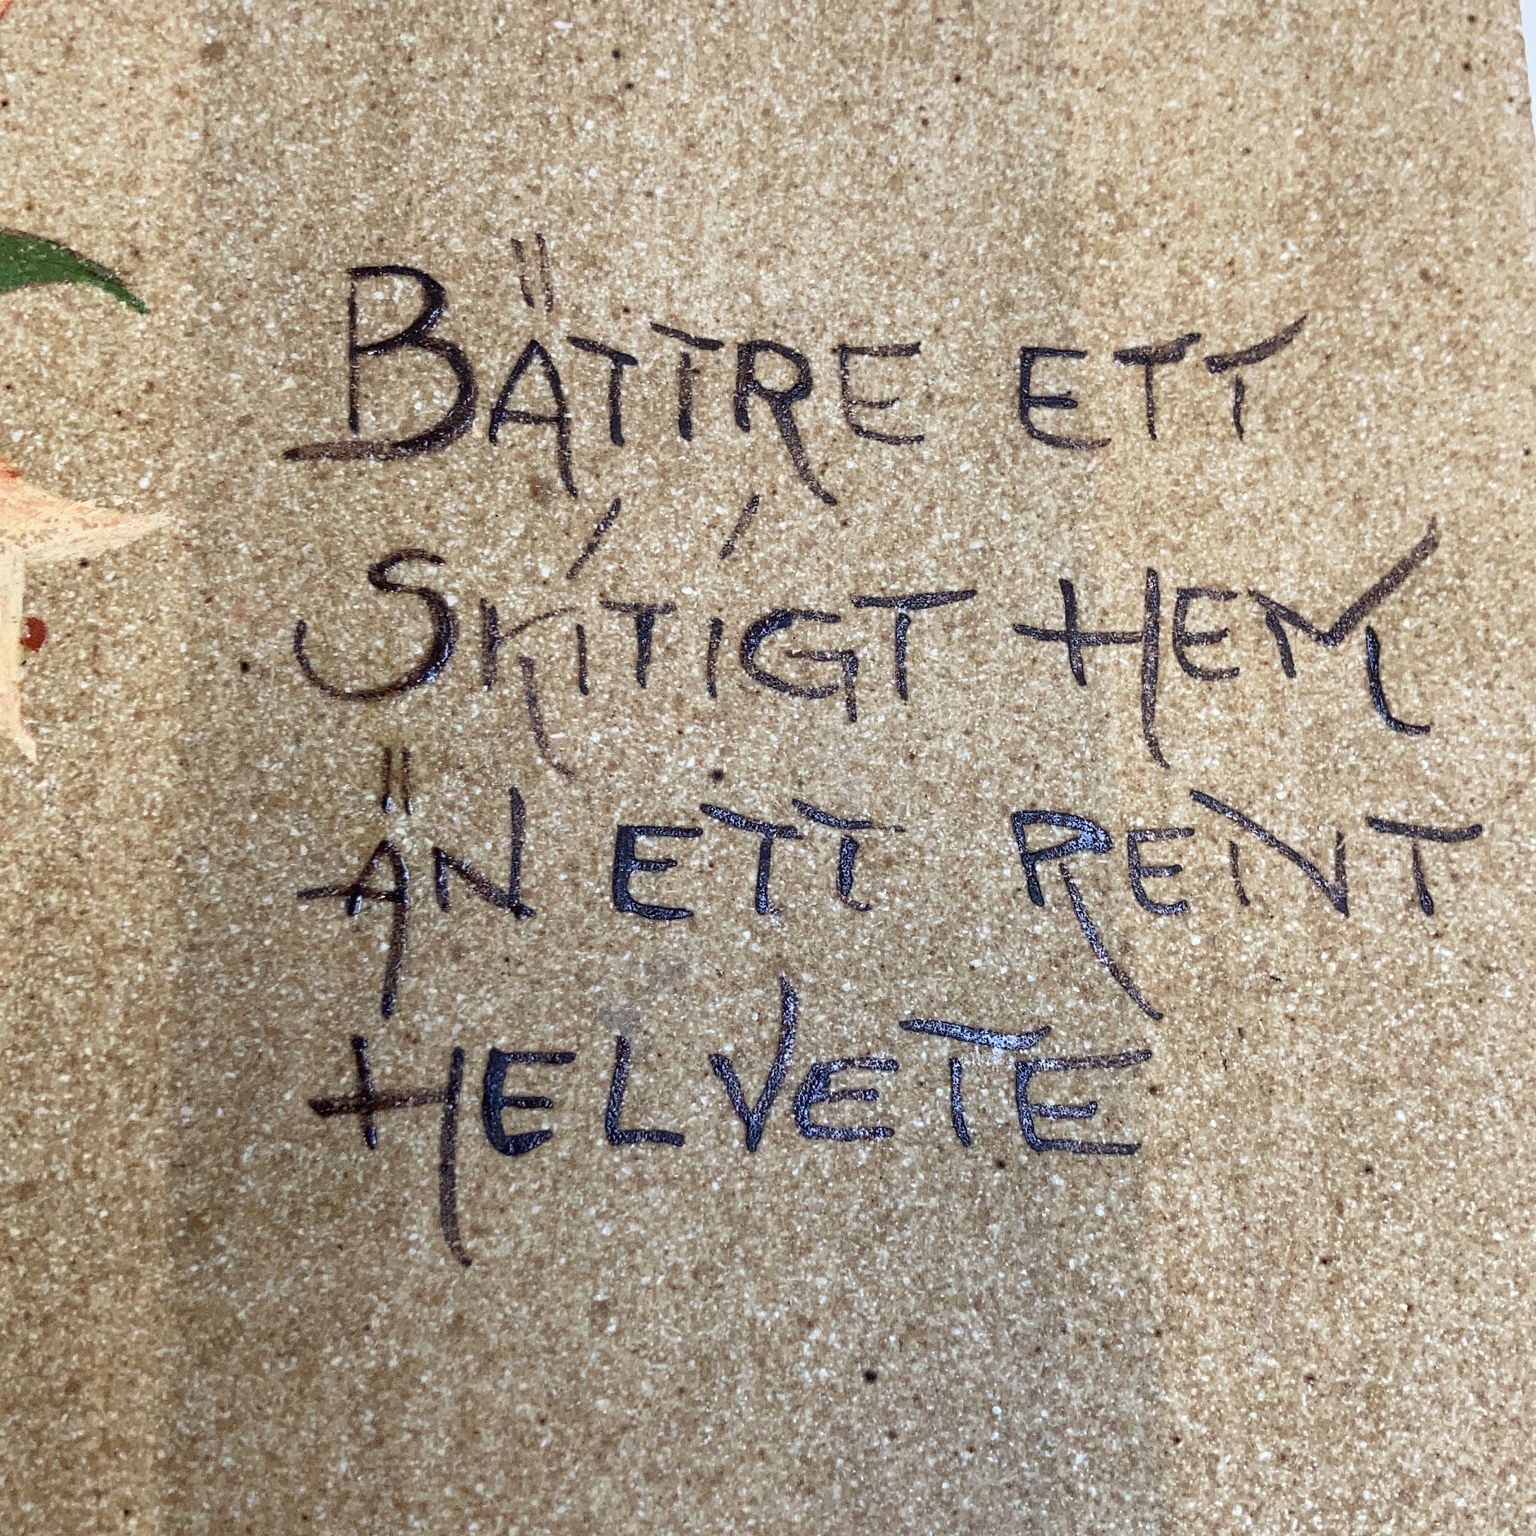 BÄTTRE ETT
SKITIGT HEM
ÄN ETT RENT
HELVETE